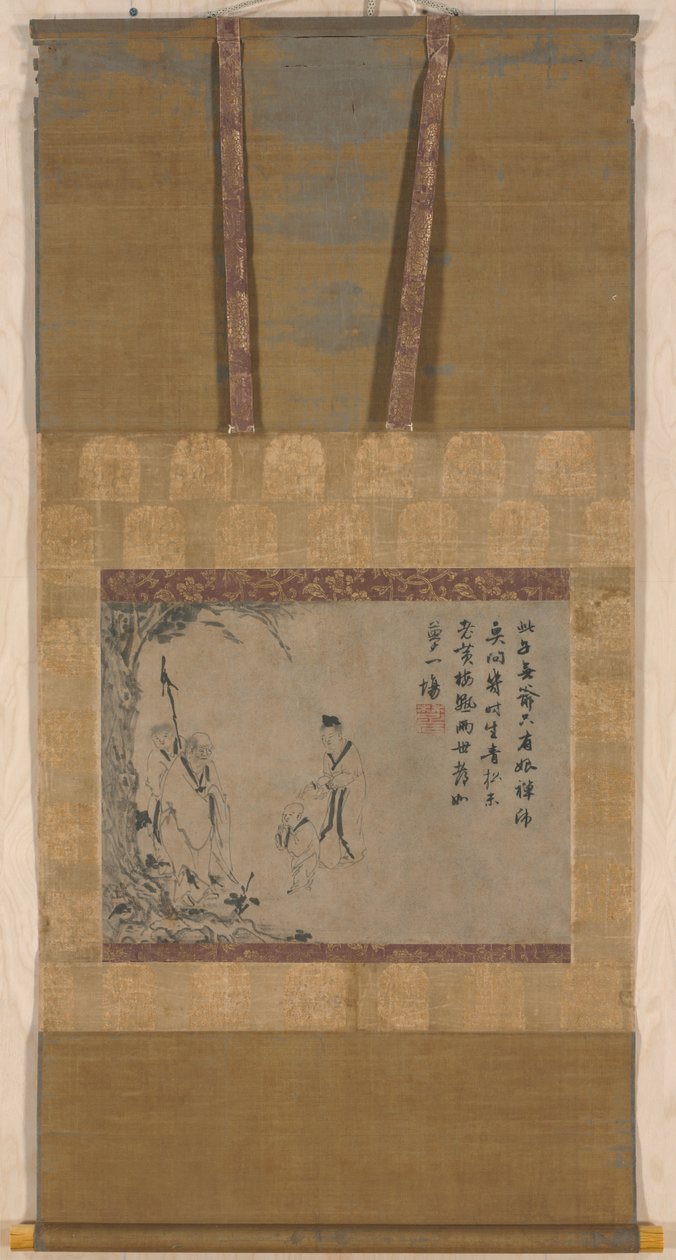 此子無爺只有娘禪師
莫問幾時生青松未
老黄梅熟兩世如
夢一場